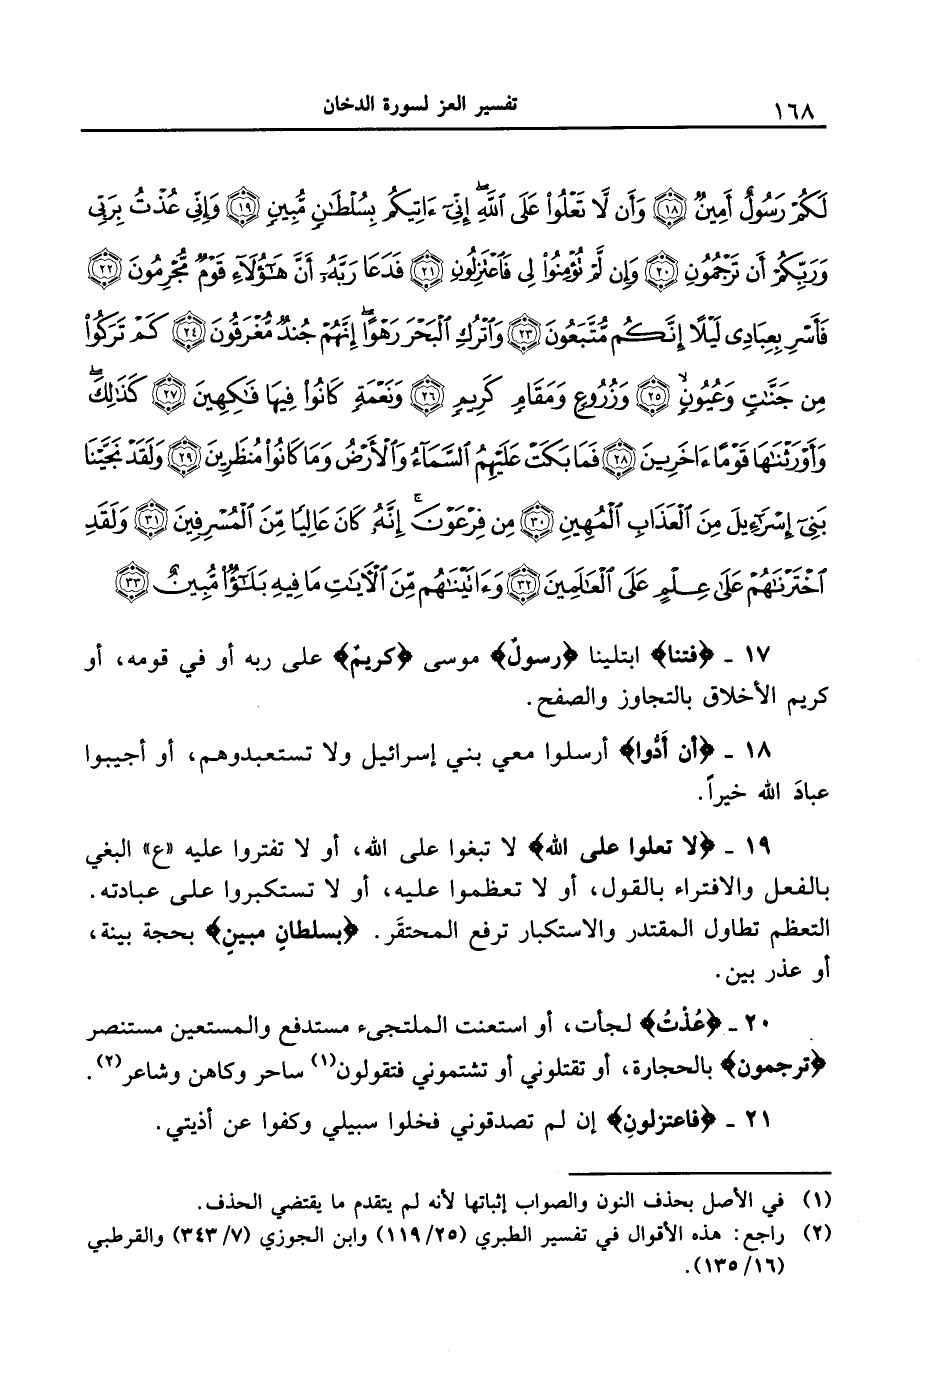 ١٦٨
تفسير العز لسورة الدخان
لَكُمْ رَسُولٌ أَمِينٌ ﴿١٨﴾ وَأَن لَّا تَعْلُوا۟ عَلَى ٱللَّهِ ۖ إِنِّىٓ ءَاتِيكُم بِسُلْطَـٰنٍ مُّبِينٍ ﴿١٩﴾ وَإِنِّى عُذْتُ بِرَبِّى
وَرَبِّكُمْ أَن تَرْجُمُونِ ﴿٢٠﴾ وَإِن لَّمْ تُؤْمِنُوا۟ لِى فَٱعْتَزِلُونِ ﴿٢١﴾ فَدَعَا رَبَّهُۥٓ أَنَّ هَـٰٓؤُلَآءِ قَوْمٌ مُّجْرِمُونَ ﴿٢٢﴾
فَأَسْرِ بِعِبَادِى لَيْلًا إِنَّكُم مُّتَّبَعُونَ ﴿٢٣﴾ وَٱتْرُكِ ٱلْبَحْرَ رَهْوًا ۖ إِنَّهُمْ جُندٌ مُّغْرَقُونَ ﴿٢٤﴾ كَمْ تَرَكُوا۟
مِن جَنَّـٰتٍ وَعُيُونٍ ﴿٢٥﴾ وَزُرُوعٍ وَمَقَامٍ كَرِيمٍ ﴿٢٦﴾ وَنَعْمَةٍ كَانُوا۟ فِيهَا فَـٰكِهِينَ ﴿٢٧﴾ كَذَٰلِكَ ۖ
وَأَوْرَثْنَـٰهَا قَوْمًا ءَاخَرِينَ ﴿٢٨﴾ فَمَا بَكَتْ عَلَيْهِمُ ٱلسَّمَآءُ وَٱلْأَرْضُ وَمَا كَانُوا۟ مُنظَرِينَ ﴿٢٩﴾ وَلَقَدْ نَجَّيْنَا
بَنِىٓ إِسْرَٰٓءِيلَ مِنَ ٱلْعَذَابِ ٱلْمُهِينِ ﴿٣٠﴾ مِن فِرْعَوْنَ ۚ إِنَّهُۥ كَانَ عَالِيًا مِّنَ ٱلْمُسْرِفِينَ ﴿٣١﴾ وَلَقَدِ
ٱخْتَرْنَـٰهُمْ عَلَىٰ عِلْمٍ عَلَى ٱلْعَـٰلَمِينَ ﴿٣٢﴾ وَءَاتَيْنَـٰهُم مِّنَ ٱلْـَٔايَـٰتِ مَا فِيهِ بَلَـٰٓؤٌا۟ مُّبِينٌ ﴿٣٣﴾
١٧ ـ ﴿فتنا﴾ ابتلينا ﴿رسولٌ﴾ موسى ﴿كريمٌ﴾ على ربه أو في قومه، أو
كريم الأخلاق بالتجاوز والصفح.
١٨ ـ ﴿أن أَدُّوا﴾ أرسلوا معي بني إسرائيل ولا تستعبدوهم، أو أجيبوا
عبادَ الله خيراً.
١٩ ـ ﴿لا تعلوا على الله﴾ لا تبغوا على الله، أو لا تفتروا عليه «ع» البغي
بالفعل والافتراء بالقول، أو لا تعظموا عليه، أو لا تستكبروا على عبادته.
التعظم تطاول المقتدر والاستكبار ترفع المحتقَر. ﴿بسلطانٍ مبينٍ﴾ بحجة بينة،
أو عذر بين.
٢٠ ـ ﴿عُذْتُ﴾ لجأت، أو استعنت الملتجىء مستدفع والمستعين مستنصر
﴿ترجمون﴾ بالحجارة، أو تقتلوني أو تشتموني فتقولون(١) ساحر وكاهن وشاعر(٢).
٢١ ـ ﴿فاعتزلونِ﴾ إن لم تصدقوني فخلوا سبيلي وكفوا عن أذيتي.
(١) في الأصل بحذف النون والصواب إثباتها لأنه لم يتقدم ما يقتضي الحذف.
(٢) راجع: هذه الأقوال في تفسير الطبري (٢٥/١١٩) وابن الجوزي (٧/٣٤٣) والقرطبي
(١٦/١٣٥).